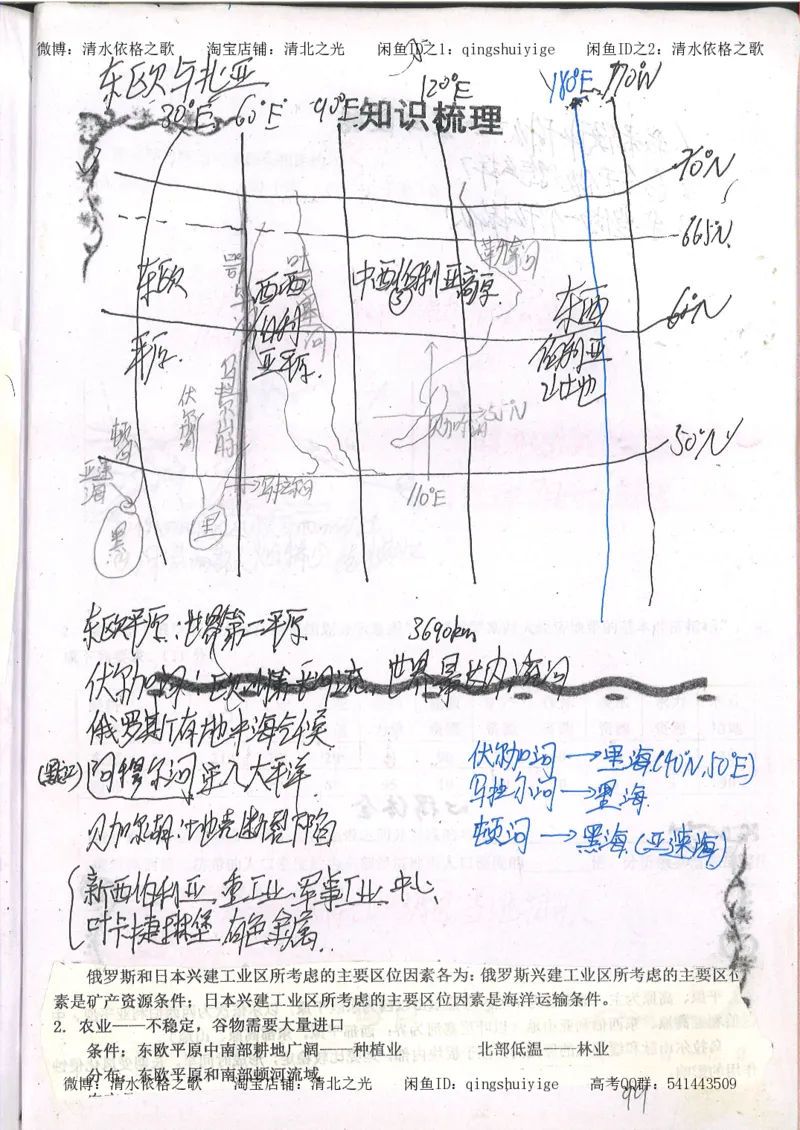 微博：清水依格之歌 淘宝店铺：清北之光 闲鱼ID之1：qingshuiyige 闲鱼ID之2：清水依格之歌
东欧与北亚
30°E 60°E 90°E 120°E 180°E 170°W
知识梳理
70°N
66.5°N
勒拿河
东欧
平原
西西
伯利
亚平原
中西伯利亚高原
③
东西
伯利亚
山地
60°N
乌拉尔山脉
伏尔加
贝加尔湖
55°N
50°N
顿河
亚速海
乌拉尔河
110°E
黑
里
东欧平原：世界第二平原
3690km
世界最大内流河
俄罗斯有地中海气候
(黑龙江)阿穆尔河注入太平洋
贝加尔湖：地壳断裂陷
伏尔加河→里海(40°N,50°E)
乌拉尔河→里海
顿河→黑海(亚速海)
新西伯利亚 重工业、军事工业 中心
叶卡捷琳堡 有色金属
俄罗斯和日本兴建工业区所考虑的主要区位因素各为：俄罗斯兴建工业区所考虑的主要区位因
素是矿产资源条件；日本兴建工业区所考虑的主要区位因素是海洋运输条件。
2. 农业——不稳定，谷物需要大量进口
条件：东欧平原中南部耕地广阔——种植业 北部低温——林业
分布：东欧平原和南部顿河流域
微博：清水依格之歌 淘宝店铺：清北之光 闲鱼ID之1：qingshuiyige 高考QQ群：541443509